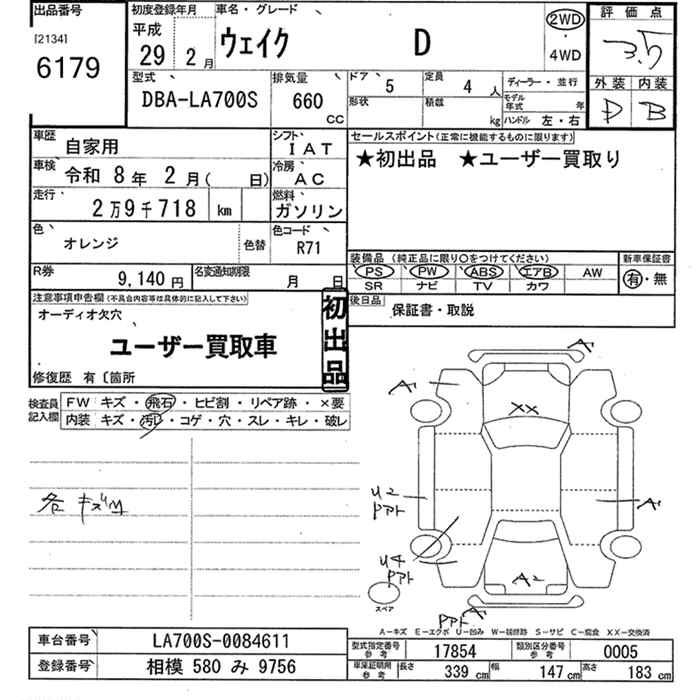 出品番号
[2134]
6179
初度登録年月
平成
29 2月
車名・グレード
ウェイク D
2WD
・
4WD
評価点
3.5
外装 内装
D B
型式
DBA-LA700S
排気量
660
CC
ドア 5
定員 4 人
形状
積載 kg
ディーラー・並行
モデル年式 年
ハンドル 左・右
車歴 自家用
シフト IAT
車検 令和 8年 2月( 日)
冷房 AC
走行 2万9千718 km
燃料 ガソリン
色 オレンジ 色替
色コード R71
セールスポイント(正常に機能するものに限ります)
★初出品 ★ユーザー買取り
装備品 (純正品に限り○をつけてください)
PS PW ABS エアB AW
SR ナビ TV カワ
新車保証書
有・無
R券 9,140円
名変通知期限 月 日
後日品 保証書・取説
注意事項申告欄(不具合内容等は具体的に記入して下さい)
オーディオ欠穴
ユーザー買取車
初出品
修復歴 有〔箇所
検査員記入欄
FW キズ・飛石・ヒビ割・リペア跡・×要
内装 キズ・汚レ・コゲ・穴・スレ・キレ・破レ
各キズ凹
A
A
XX
U2
PPト
A
U4
PPト
A2
スペア
PPト A
A-キズ E-エクボ U-凹み W-補修跡 S-サビ C-腐食 XX-交換済
車台番号 LA700S-0084611
登録番号 相模 580 み 9756
型式指定番号 参考 17854
類別区分番号 参考 0005
車庫証明用 参考 長さ 339 cm 幅 147 cm 高さ 183 cm